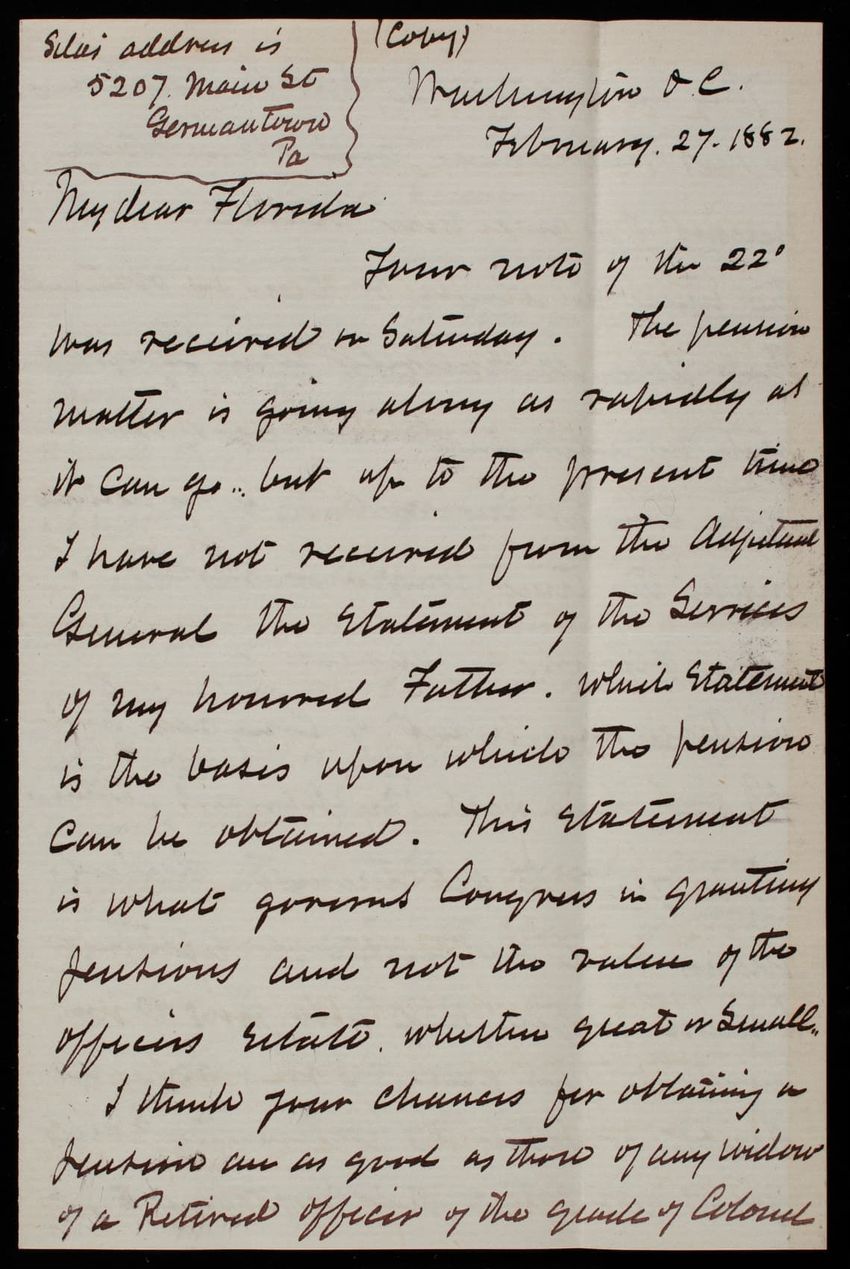 Silas address is
5207. Main St
Germantown
Pa
(Copy)
Washington D.C.
February. 27. 1882.
My dear Florida
Your note of the 22°
was received on Saturday. The pension
matter is going along as rapidly as
it can go.. but up to the present time
I have not received from the Adjutant
General the Statement of the Services
of my honored Father. which Statement
is the basis upon which the pension
can be obtained. This Statement
is what governs Congress in granting
pensions and not the value of the
officers Estate. whether great or Small..
I think your chances for obtaining a
pension are as good as those of any widow
of a Retired officer of the grade of Colonel